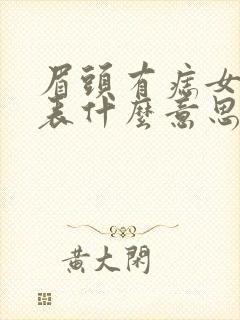 眉頭有痣女
表什麼意思
黃大閑